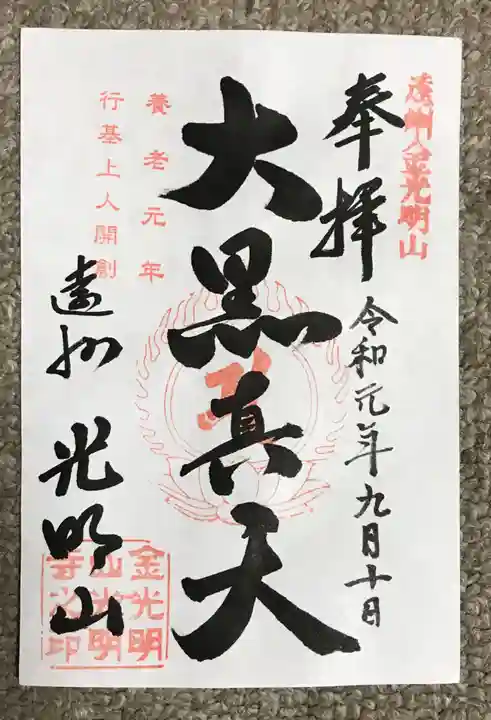 遠州金光明山
奉拝
令和元年九月十日
大黒真天
養老元年
行基上人開創
遠州 光明山
金光明
山光明
寺之印